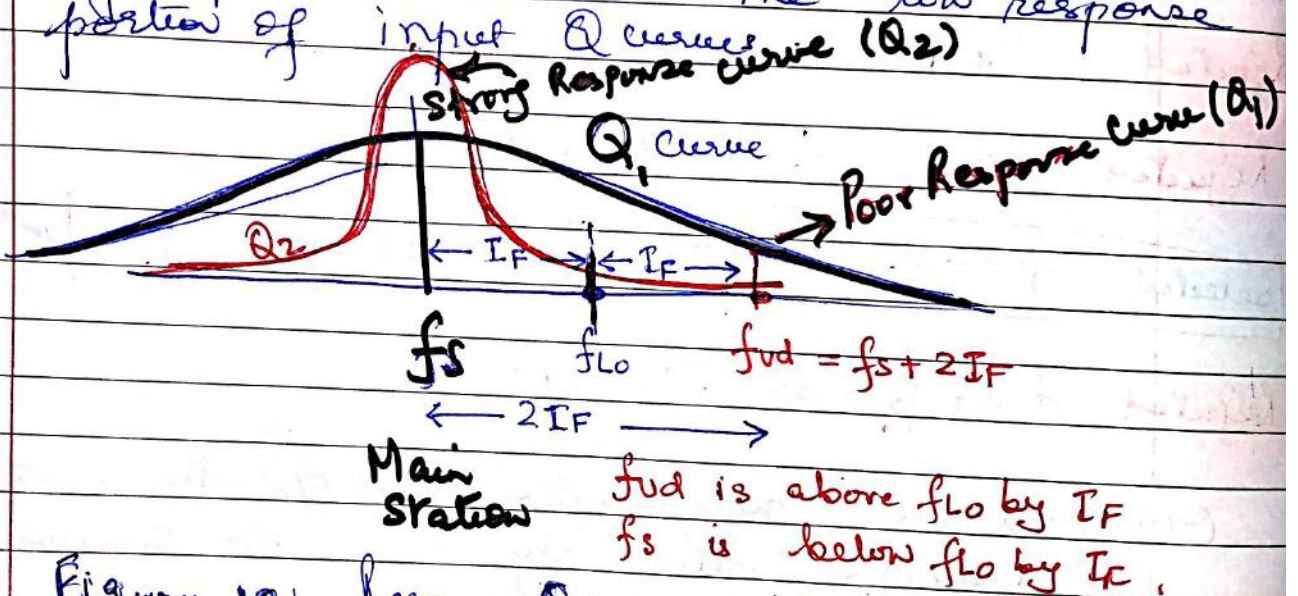 portion of input Q curves (Q2)
Strong Response curve
Q1 curve
Poor Response curve (Q1)
Q2
← IF → ← IF →
fs
fLo
fud = fs + 2IF
← 2IF →
Main
Station
fud is above fLo by IF
fs is below fLo by IF.